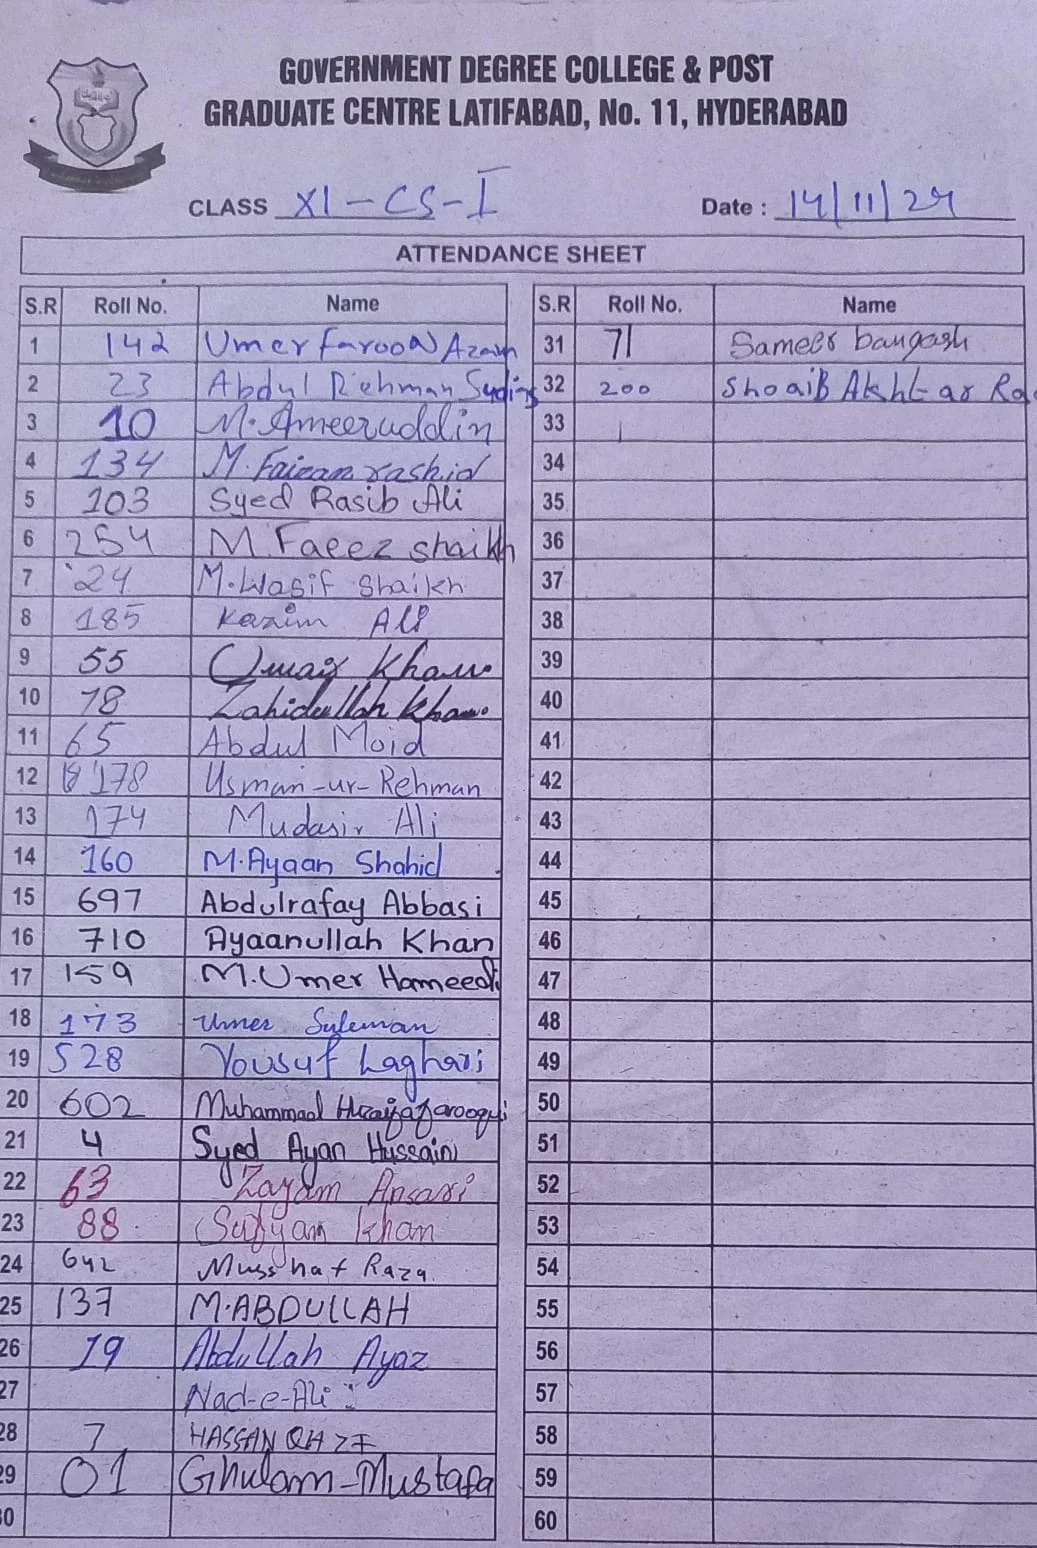 GOVERNMENT DEGREE COLLEGE & POST
GRADUATE CENTRE LATIFABAD, No. 11, HYDERABAD
CLASS XI-CS-I Date : 14/11/24
ATTENDANCE SHEET
S.R Roll No. Name
1 142 Umer farooq Azam
2 23 Abdul Rehman
3 10 M. Ameeruddin
4 134 M. Faizan rashid
5 103 Syed Rasib Ali
6 254 M. Faeez shaikh
7 24 M. Wasif Shaikh
8 185 Kazim Ali
9 55 Umair Khan
10 78 Zahidullah Khan
11 65 Abdul Moid
12 178 Usman-ur-Rehman
13 174 Mudasir Ali
14 160 M. Ayaan Shahid
15 697 Abdulrafay Abbasi
16 710 Ayaanullah Khan
17 159 M. Umer Hameed
18 173 Umer Suleman
19 528 Yousuf Laghari
20 602 Muhammad Huzaifa farooqui
21 4 Syed Ayan Hussaini
22 63 Zayam Ansari
23 88 Sufyan Khan
24 642 Raza
25 137 M. ABDULLAH
26 19 Abdullah Ayaz
27 Nad-e-Ali
28 7 HASSAN QAZI
29 01 Ghulam-Mustafa
30
S.R Roll No. Name
31 71 Sameer bangash
32 200 Shoaib Akhtar
33
34
35
36
37
38
39
40
41
42
43
44
45
46
47
48
49
50
51
52
53
54
55
56
57
58
59
60